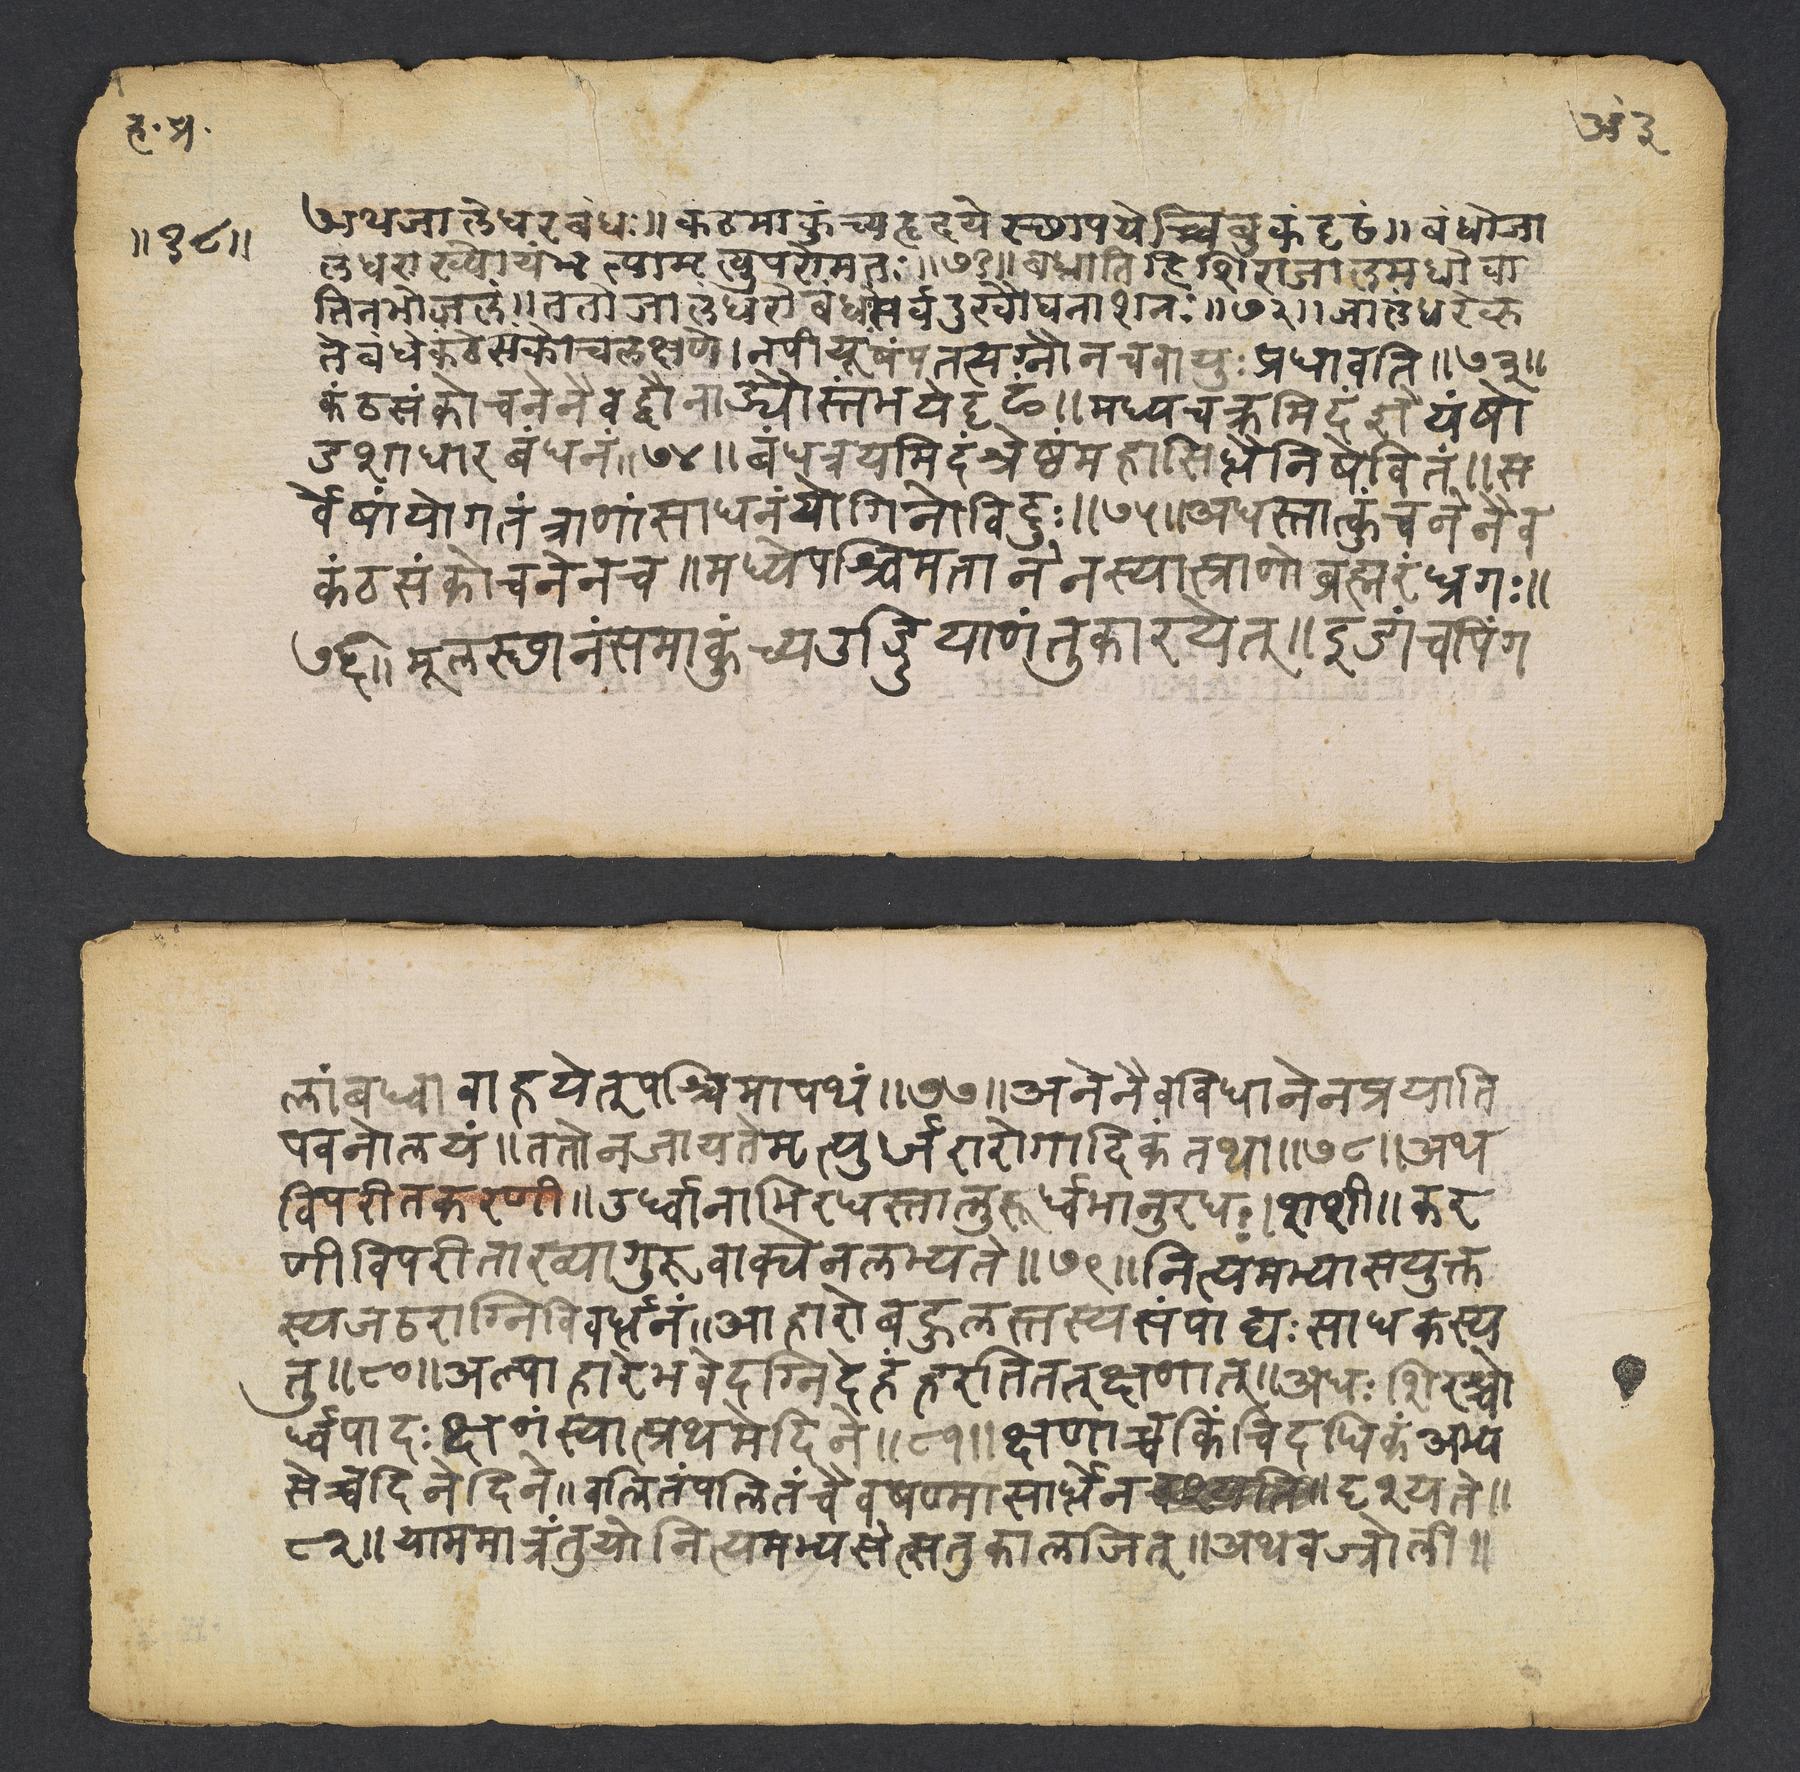 ह॰ प्र॰
अं ३
॥१८॥
अथजालंधरबंधः॥ कंठमाकुंच्यहृदयेस्छापयेच्चिबुकंदृढं॥ बंधोजा
लंधराख्योयंमृत्पामृत्युपरोमतः॥७१॥ बध्नातिहिशिराजालमधोया
तिनभोजलं॥ ततोजालंधरोबंधःसर्वदुखौघनाशनः॥७२॥ जालंधरेकृ
तेबंधेकंठसंकोचलक्षणे।नपीयूषंपतत्यग्नौनचवायुः प्रधावति॥७३॥
कंठसंकोचनेनैवद्वौनाड्यौस्तंभयेदृढं॥ मध्यचक्रमिदंज्ञेयंषो
डशाधारबंधनं॥७४॥ बंधत्रयमिदंश्रेष्ठंमहासिद्धैनिषेवितं॥ स
र्वेषांयोगतंत्राणांसाधनंयोगिनोविदुः॥७५॥अधस्तात्कुंचनेनैव
कंठसंकोचनेनच॥मध्येपश्चिमतानेनस्यात्प्राणोब्रह्मरंध्रगः॥
७६॥ मूलस्छानंसमाकुंच्यउड्डियाणंतुकारयेत्॥ इडांचपिंग
लांबध्वावाहयेत्पश्चिमापथं॥७७॥अनेनैवविधानेनप्रयाति
पवनोलयं॥ततोनजायतेमृत्युर्जरारोगादिकंतथा॥७८॥अथ
विपरीतकरणी॥उर्ध्वानाभिरधस्तालुरूर्ध्वभानुरधः।शशी॥कर
णीविपरीताख्यागुरूवाक्येनलभ्यते॥७९॥नित्यमभ्यासयुक्त
स्यजठराग्निविवर्धनं॥आहारोबहुलस्तस्यसंपाद्यःसाधकस्य
तु॥८०॥अल्पाहारेभवेदग्निदेहंहरतितत्क्षणात्॥अधःशिरश्चो
र्ध्वपादःक्षणंस्यात्प्रथमेदिने॥८१॥क्षणाच्चकिंचिदधिकंअभ्य
सेच्चदिनेदिने॥वलितंपलितंचैवषण्मासार्धेन दृश्यते॥
८२॥याममात्रंतुयोनित्यमभ्यसेत्सतुकालजित्॥अथवज्रोली॥